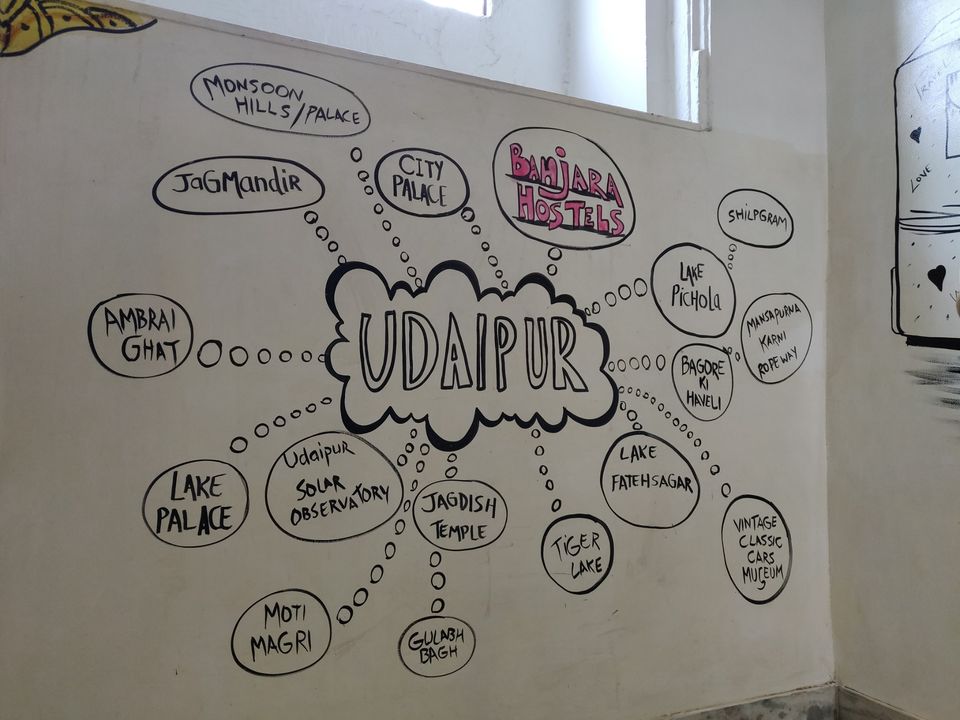 MONSOON
HILLS/PALACE
JaGMandiR
CITY
PALACE
BANJARA
HOSTELS
SHILPGRAM
LAKE
PiCHola
AMBRAI
GHAT
UDAIPUR
MANSAPURNA
KARNI
ROPE WAY
BAGORE
KI
HAVELI
LAKE
PALACE
Udaipur
SOLAR
OBSERVATORY
JAGDISH
TEMPLE
LAKE
FATEHSAGAR
TiGER
LAKE
VINTAGE
CLASSIC
CARS
MUSEUM
MOTI
MAGRI
GULABH
BAGH
LOVE